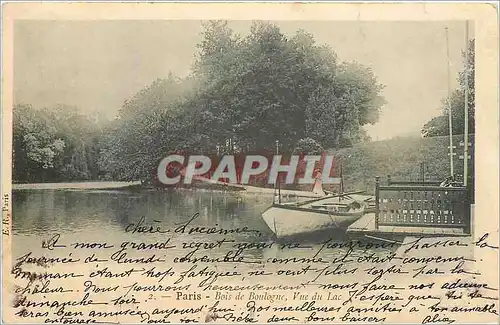 CPARAMA
E. R., Paris
Chère Lucienne
A mon grand regret nous ne pouvons passer la
journée de Lundi ensemble comme était convenu
maman étant trop fatiguée ne veut plus sortir par la
chaleur. Nous pourrons heureusement nous faire nos adieux
2. — Paris - Bois de Boulogne, Vue du Lac
dimanche soir J'espère que tu
seras bien amusée aujourd'hui Nos meilleures amitiés à ton aimable
entourage Pour toi deux bons baisers